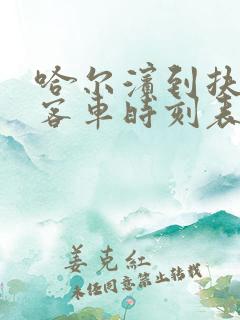 哈尔滨到扶
客车时刻表
姜克红
未经同意禁止转载